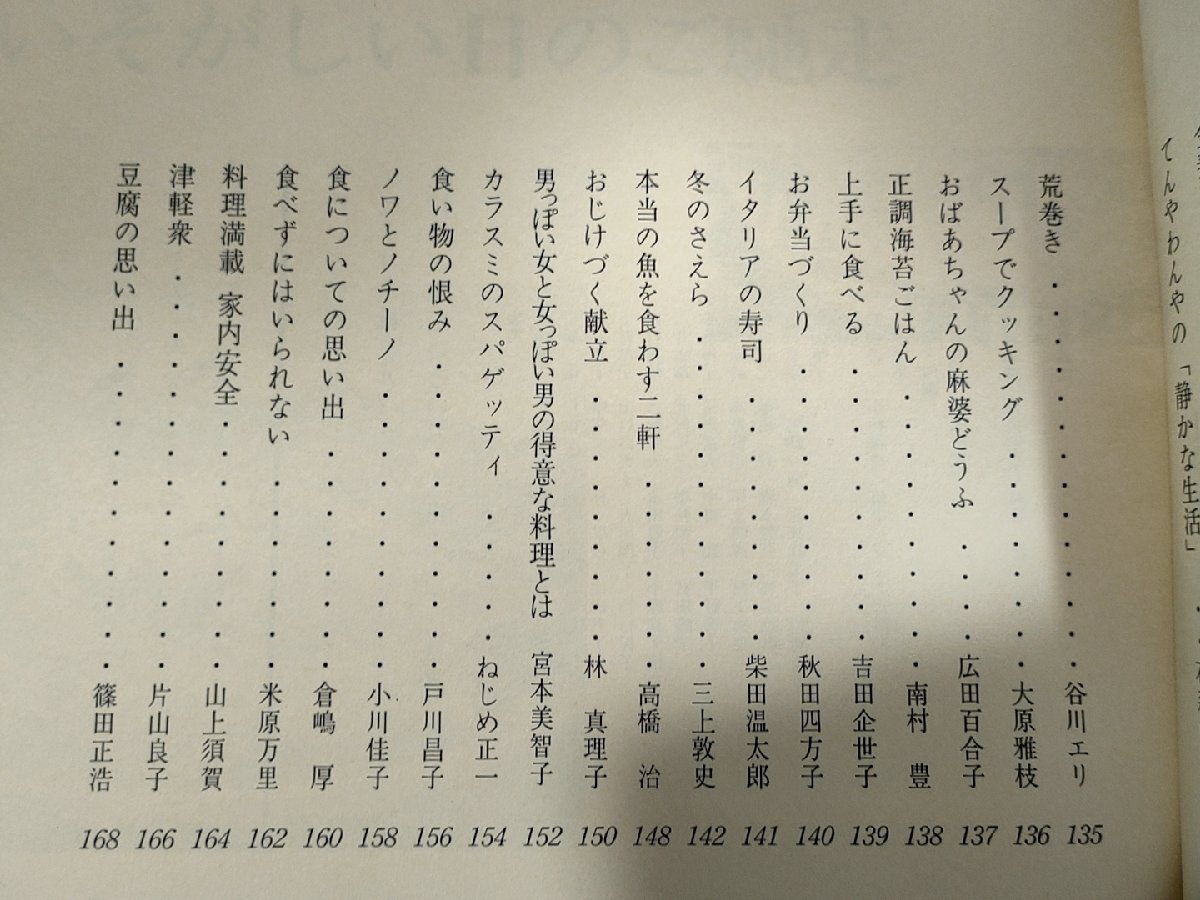 てんやわんやの「静かな生活」
荒巻き・・・・・・・・・・・・・・谷川エリ 135
スープでクッキング・・・・・・・・大原雅枝 136
おばあちゃんの麻婆どうふ・・・・広田百合子 137
正調海苔ごはん・・・・・・・・・・南村 豊 138
上手に食べる・・・・・・・・・・吉田企世子 139
お弁当づくり・・・・・・・・・・秋田四方子 140
イタリアの寿司・・・・・・・・・柴田温太郎 141
冬のさえら・・・・・・・・・・・・三上敦史 142
本当の魚を食わす二軒・・・・・・・高橋 治 148
おじけづく献立・・・・・・・・・林 真理子 150
男っぽい女と女っぽい男の得意な料理とは 宮本美智子 152
カラスミのスパゲッティ・・・・・ねじめ正一 154
食い物の恨み・・・・・・・・・・・戸川昌子 156
ノワとノチーノ・・・・・・・・・・小川佳子 158
食についての思い出・・・・・・・・倉嶋 厚 160
食べずにはいられない・・・・・・・米原万里 162
料理満載 家内安全・・・・・・・・山上須賀 164
津軽衆・・・・・・・・・・・・・・片山良子 166
豆腐の思い出・・・・・・・・・・・篠田正浩 168
いそがしい日のご馳走